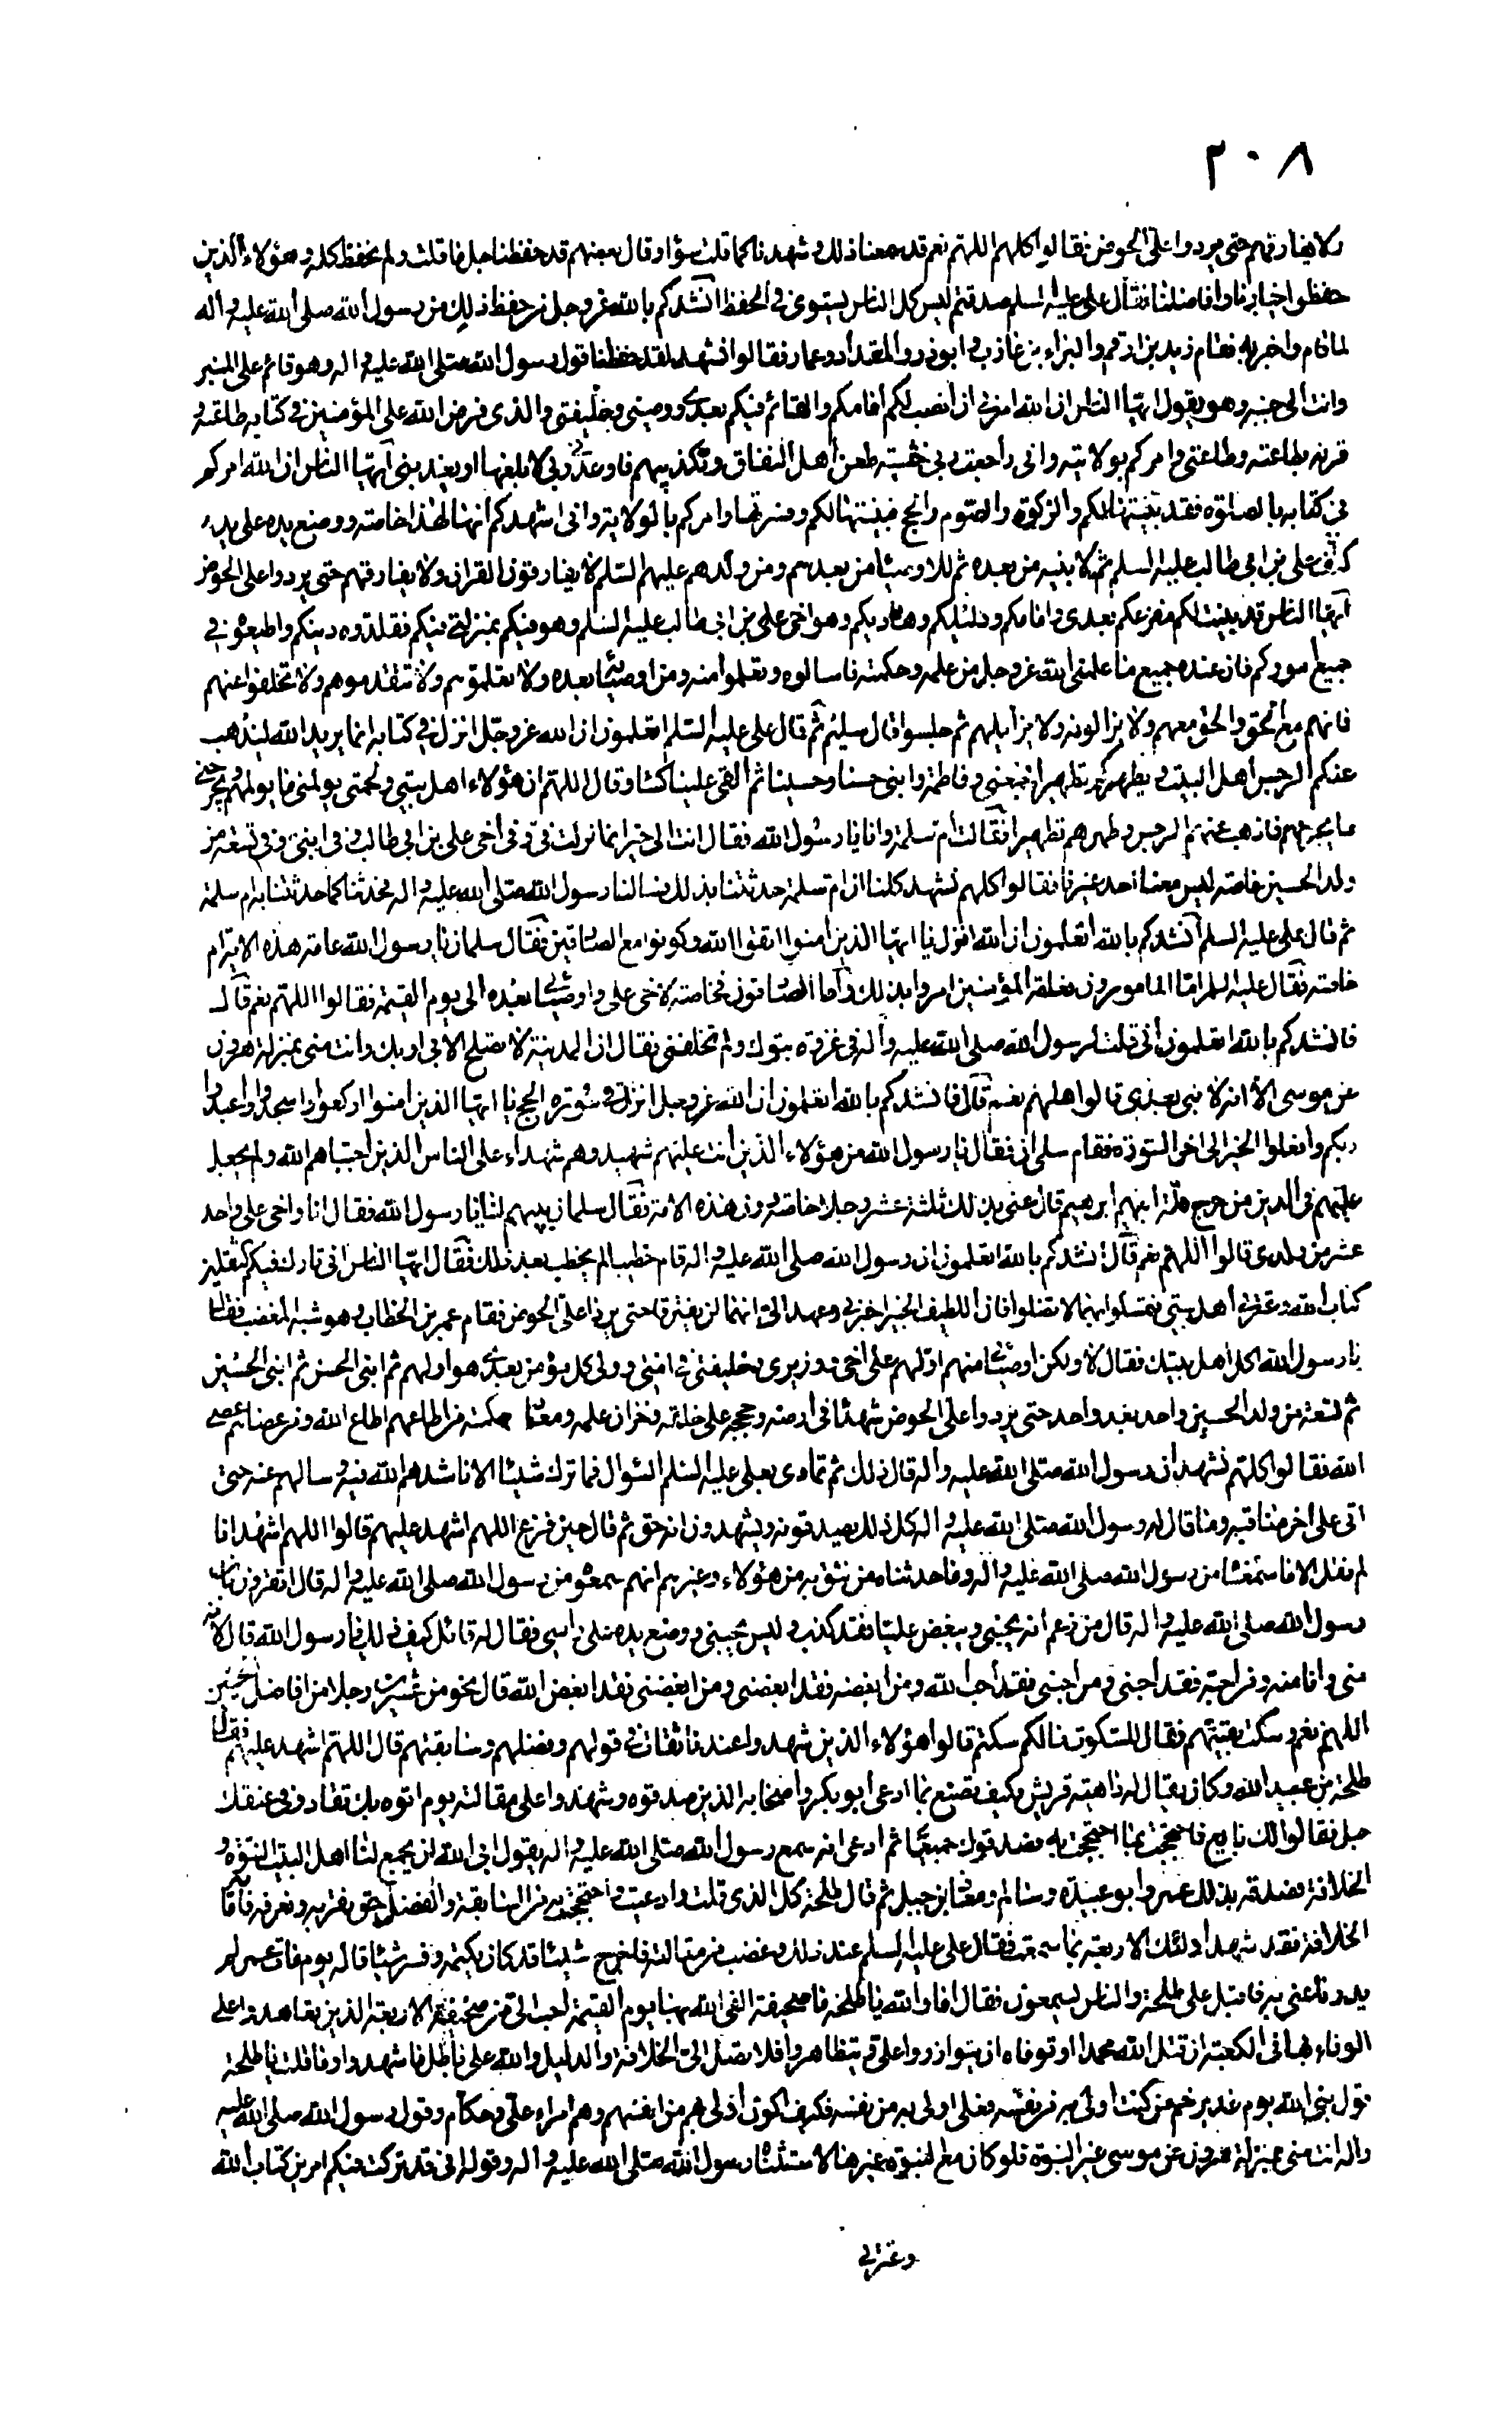 ٢٠٨
ولا يفارقهم حتى يردوا علىّ الحوض فقالوا كلهم اللهم نعم قد سمعنا ذلك وشهدنا كما قلت سواء وقال بعضهم قد حفظنا جل ما قلت ولم نحفظ كله وهؤلاء الذين
حفظوا اخيارنا وافاضلنا فقال على عليه السلم صدقتم ليس كل الناس يستوى فى الحفظ انشدكم بالله عز وجل من حفظ ذلك من رسول الله صلى الله عليه وآله
لما قام واخبر به فقام زيد بن ارقم والبراء بن عازب وابوذر والمقداد وعمار فقالوا نشهد لقد حفظنا قول رسول الله صلى الله عليه واله وهو قائم على المنبر
وانت الى جنبه وهو يقول ايها الناس ان الله امرنى ان انصب لكم امامكم والقائم فيكم بعدى ووصيى وخليفتى والذى فرض الله على المؤمنين فى كتابه طاعته
قرنه بطاعته وطاعتى وامركم بولايته وانى راجعت ربى خشية طعن اهل النفاق وتكذيبهم فاوعدنى ربى لابلغنها او يعذبنى ايها الناس ان الله امركم
فى كتابه بالصلوة فقد بينتها لكم والزكوة والصوم والحج فبينتها لكم وفسرتها وامركم بالولاية وانى اشهدكم انها لهذا خاصة ووضع يده على يد
كتف على بن ابى طالب عليه السلم ثم لابنيه من بعده ثم للاوصياء من بعدهم ومن ولدهم عليهم السلم لا يفارقون القران ولا يفارقهم حتى يردوا على الحوض
ايها الناس قد بينت لكم مفزعكم بعدى وامامكم ودليلكم وهاديكم وهو اخى على بن ابى طالب عليه السلم وهو فيكم بمنزلتى فيكم فقلدوه دينكم واطيعوه فى
جميع اموركم فان عنده جميع ما علمنى الله عز وجل من علمه وحكمته فاسالوه وتعلموا منه ومن اوصيائه بعده ولا تعلموهم ولا تتقدموهم ولا تخلفوا عنهم
فانهم مع الحق والحق معهم ولا يزالونه ولا يزايلهم ثم جلسوا قال سليم ثم قال على عليه السلم اتعلمون ان الله عز وجل انزل فى كتابه انما يريد الله ليذهب
عنكم الرجس اهل البيت ويطهركم تطهيرا فجمعنى وفاطمة وابنى حسنا وحسينا ثم القى علينا كساء وقال اللهم ان هؤلاء اهل بيتى ولحمتى يولمنى ما يولمهم ويجرحنى
ما يجرحهم فاذهب عنهم الرجس وطهرهم تطهيرا فقالت ام سلمة وانا يا رسول الله فقال انت الى خير انما نزلت فىّ وفى اخى على بن ابى طالب وفى ابنى وفى تسعة من
ولد الحسين خاصة ليس معنا احد غيرنا فقالوا كلهم نشهد كلنا ان ام سلمة حدثتنا بذلك فسالنا رسول الله صلى الله عليه واله فحدثنا كما حدثتنا به ام سلمة
ثم قال على عليه السلم انشدكم بالله اتعلمون ان الله انزل يا ايها الذين امنوا اتقوا الله وكونوا مع الصادقين فقال سلمان يا رسول الله عامة هذه الاية ام
خاصة فقال عليه السلم اما المامورون فعامة المؤمنين امروا بذلك واما الصادقون فخاصة لاخى على واوصيائى بعده الى يوم القيمة فقالوا اللهم نعم قال
فانشدكم بالله اتعلمون انى قلت لرسول الله صلى الله عليه واله فى غزوة تبوك ولم تخلفنى فقال ان المدينة لا تصلح الا بى او بك وانت منى بمنزلة هرون
من موسى الا انه لا نبى بعدى قالوا اللهم نعم قال فانشدكم بالله اتعلمون ان الله عز وجل انزل فى سورة الحج يا ايها الذين امنوا اركعوا واسجدوا واعبدوا
ربكم وافعلوا الخير الى اخر السورة فقام سلمان فقال يا رسول الله من هؤلاء الذين انت عليهم شهيد وهم شهداء على الناس الذين اجتباهم الله ولم يجعل
عليهم فى الدين من حرج ملة ابيهم ابرهيم قال عنى بذلك ثلثة عشر رجلا خاصة دون هذه الامة فقال سلمان بينهم لنا يا رسول الله فقال انا واخى على واحد
عشر من ولدى قالوا اللهم نعم قال انشدكم بالله اتعلمون ان رسول الله صلى الله عليه واله قام خطيبا لم يخطب بعد ذلك فقال ايها الناس انى تارك فيكم الثقلين
كتاب الله وعترتى اهل بيتى فتمسكوا بهما لا تضلوا فان اللطيف الخبير اخبرنى وعهد الىّ انهما لن يفترقا حتى يردا علىّ الحوض فقام عمر بن الخطاب وهو شبه المغضب فقال
يا رسول الله اكل اهل بيتك فقال لا ولكن اوصيائى منهم اولهم على اخى ووزيرى وخليفتى فى امتى وولى كل مؤمن بعدى هو اولهم ثم ابنى الحسن ثم ابنى الحسين
ثم تسعة من ولد الحسين واحد بعد واحد حتى يردوا على الحوض شهداء فى ارضه وحججه على خلقه وخزان علمه ومعادن حكمته من اطاعهم اطاع الله ومن عصاهم عصى
الله فقالوا كلهم نشهد ان رسول الله صلى الله عليه واله قال ذلك ثم تمادى بعلى عليه السلم السؤال فما ترك شيئا الا ناشدهم الله فيه وسالهم عنه حتى
اتى على اخر مناقبه وما قال له رسول الله صلى الله عليه واله كل ذلك يصدقونه ويشهدون انه حق ثم قال حين فرغ اللهم اشهد عليهم قالوا اللهم اشهد انا
لم نقل الا ما سمعناه من رسول الله صلى الله عليه واله وما حدثناه من نثق به من هؤلاء وغيرهم انهم سمعوه من رسول الله صلى الله عليه واله قال اتقرون بان
رسول الله صلى الله عليه واله قال من زعم انه يحبنى ويبغض عليا فقد كذب وليس يحبنى ووضع يده على راسى فقال له قائل كيف ذلك يا رسول الله قال لانه
منى وانا منه ومن احبه فقد احبنى ومن احبنى فقد احب الله ومن ابغضه فقد ابغضنى ومن ابغضنى فقد ابغض الله قال نحو من عشرين رجلا من افاضل الحيين
اللهم نعم وسكت بقيتهم فقال للسكوت مالكم سكتم قالوا هؤلاء الذين شهدوا عندنا ثقات فى قولهم وفضلهم وسابقتهم قال اللهم اشهد عليهم فقال
طلحة بن عبيد الله وكان يقال له داهية قريش فكيف تصنع بما ادعى ابو بكر واصحابه الذين صدقوه وشهدوا على مقالته يوم اتوه بك تقاد وفى عنقك
حبل فقالوا لك بايع فاحتججت بما احتججت به فصدقوك جميعا ثم ادعى انه سمع رسول الله صلى الله عليه واله يقول ابى الله ان يجمع لنا اهل البيت النبوة و
الخلافة فصدقه بذلك عمر وابو عبيدة وسالم ومعاذ بن جبل ثم قال طلحة كل الذى قلت وادعيت واحتججت به من السابقة والفضل حق نقر به ونعرفه فاما
الخلافة فقد شهد اولئك الاربعة بما سمعت فقال على عليه السلم عند ذلك وغضب من مقالته فاخرج شيئا قد كان يكتمه وفسر شيئا قاله يوم مات عمر لم
يدر ما عنى به فاقبل على طلحة والناس يسمعون فقال اما والله يا طلحة ما صحيفة القى الله بها يوم القيمة احب الى من صحيفة الاربعة الذين تعاهدوا على
الوفاء بها فى الكعبة ان قتل الله محمدا او توفاه ان يتوازروا على ويتظاهروا فلا تصل الى الخلافة والدليل والله على باطل ما شهدوا وما قلت يا طلحة
قول نبى الله يوم غدير خم من كنت اولى به من نفسه فعلى اولى به من نفسه فكيف اكون اولى بهم من انفسهم وهم امراء على وحكام وقول رسول الله صلى الله عليه
واله انت منى بمنزلة هرون من موسى غير النبوة فلو كان مع النبوة غيرها لاستثناه رسول الله صلى الله عليه واله وقوله انى قد تركت فيكم امرين كتاب الله
وعترتى